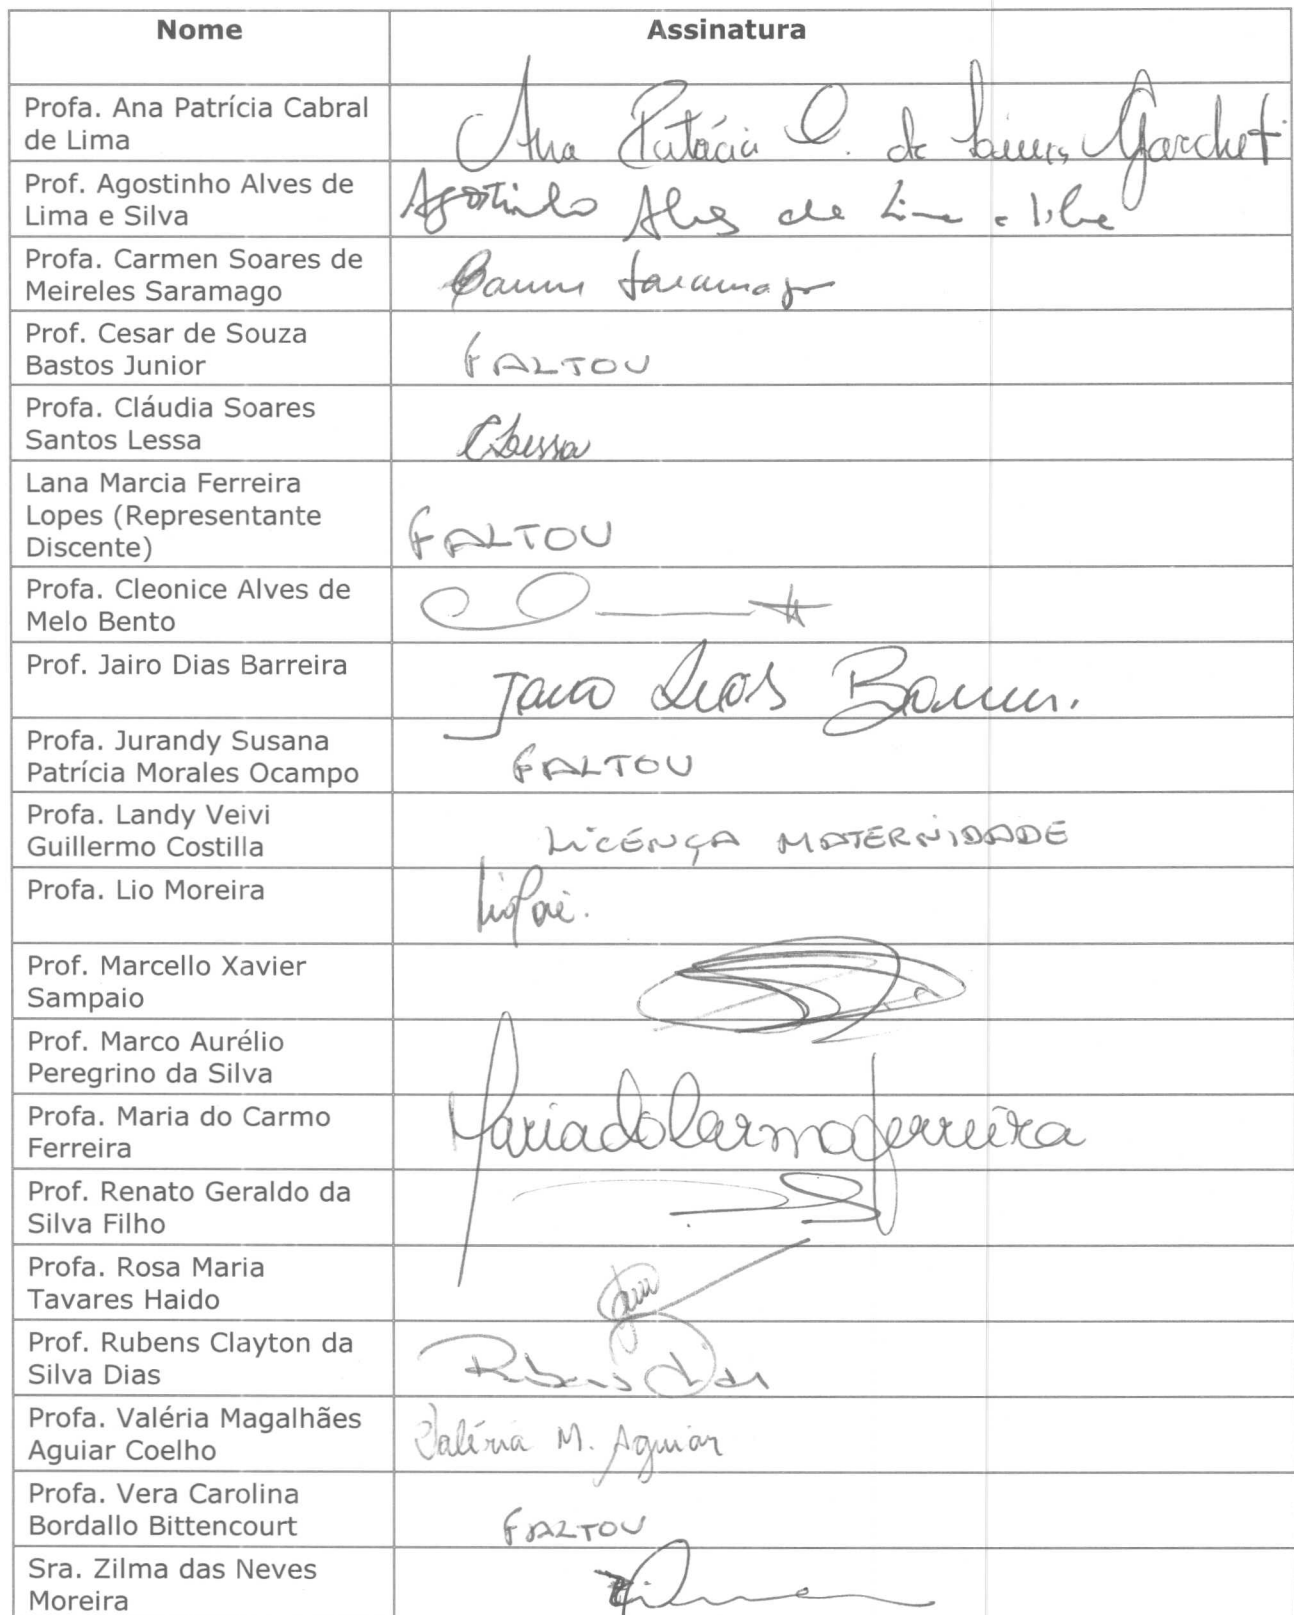 Nome Assinatura
Profa. Ana Patrícia Cabral
de Lima
Ana Patrícia C. de Lima Garchet
Prof. Agostinho Alves de
Lima e Silva
Agostinho Alves de Lima e Silva
Profa. Carmen Soares de
Meireles Saramago
Carmen Saramago
Prof. Cesar de Souza
Bastos Junior
FALTOU
Profa. Cláudia Soares
Santos Lessa
CLessa
Lana Marcia Ferreira
Lopes (Representante
Discente)
FALTOU
Profa. Cleonice Alves de
Melo Bento
Prof. Jairo Dias Barreira
Jairo Dias
Profa. Jurandy Susana
Patrícia Morales Ocampo
FALTOU
Profa. Landy Veivi
Guillermo Costilla
LICENÇA MATERNIDADE
Profa. Lio Moreira
Prof. Marcello Xavier
Sampaio
Prof. Marco Aurélio
Peregrino da Silva
Profa. Maria do Carmo
Ferreira
Maria do Carmo Ferreira
Prof. Renato Geraldo da
Silva Filho
Profa. Rosa Maria
Tavares Haido
Prof. Rubens Clayton da
Silva Dias
Rubens Dias
Profa. Valéria Magalhães
Aguiar Coelho
Valéria M. Aguiar
Profa. Vera Carolina
Bordallo Bittencourt
FALTOU
Sra. Zilma das Neves
Moreira
Zilma